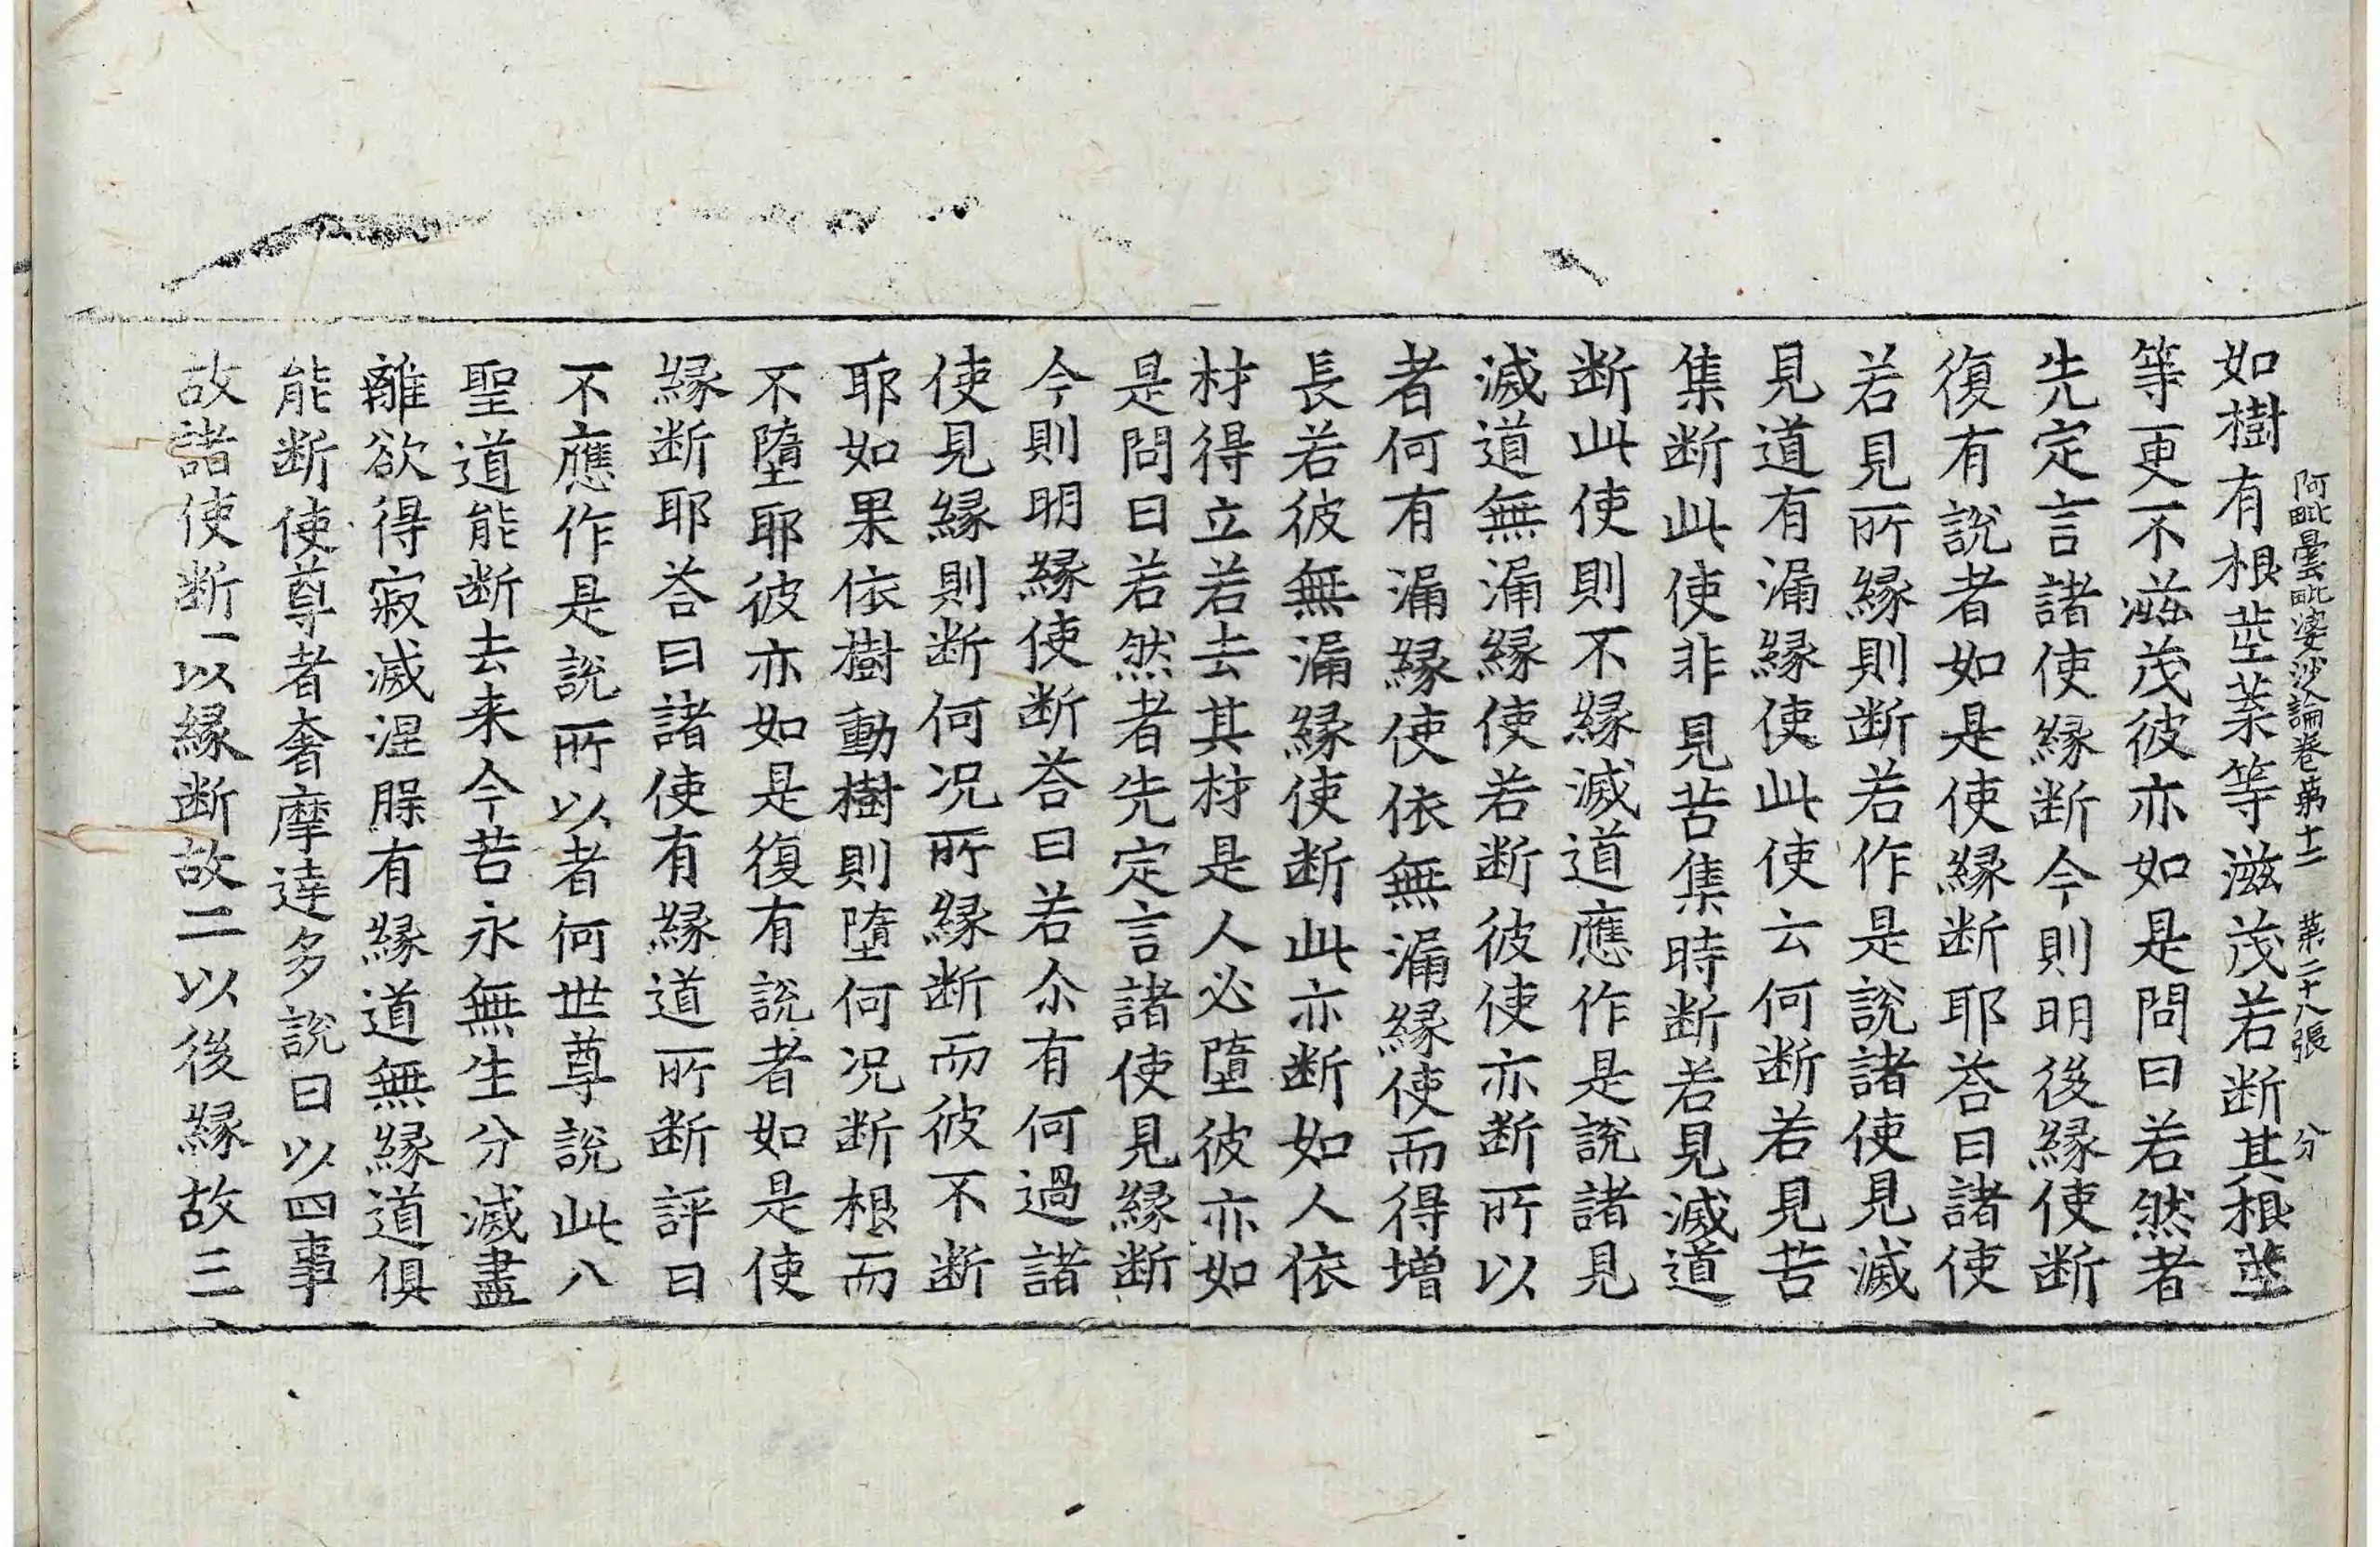 阿毗曇毗婆沙論卷苐十二 苐二十八張 分
如樹有根莖葉等滋茂若断其根莖
等更不滋茂彼亦如是問曰若然者
先定言諸使縁断今則明後縁使断
復有說者如是使縁断耶荅曰諸使
若見所縁則断若作是說諸使見滅
見道有漏縁使此使云何断若見苦
集断此使非見苦集時断若見滅道
断此使則不縁滅道應作是說諸見
滅道無漏縁使若断彼使亦断所以
者何有漏縁使依無漏縁使而得增
長若彼無漏縁使断此亦断如人依
材得立若去其材是人必墮彼亦如
是問曰若然者先定言諸使見縁断
今則明縁使断荅曰若尒有何過諸
使見縁則断何况所縁断而彼不断
耶如果依樹動樹則墮何况断根而
不墮耶彼亦如是復有說者如是使
縁断耶荅曰諸使有縁道所断評曰
不應作是說所以者何世尊說此八
聖道能断去来今苦永無生分滅盡
離欲得寂滅涅槃有縁道無縁道俱
能断使尊者奢摩達多說曰以四事
故諸使断一以縁断故二以後縁故三